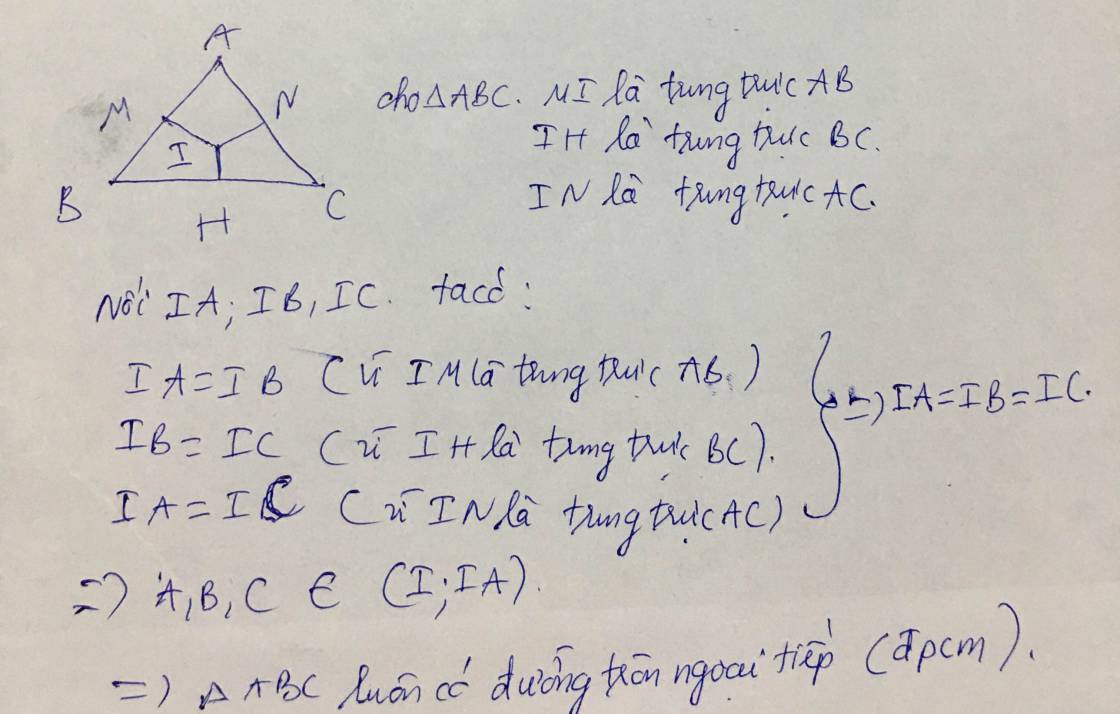 A
M
N
I
B
H
C
cho ΔABC. MI là trung trực AB
IH là trung trực BC.
IN là trung trực AC.
Nối IA; IB, IC. ta có:
IA = IB (vì IM là trung trực AB.)
IB = IC (vì IH là trung trực BC).
IA = IC (vì IN là trung trực AC)
=> IA = IB = IC.
=> A, B, C ∈ (I; IA).
=> Δ ABC luôn có đường tròn ngoại tiếp (đpcm).